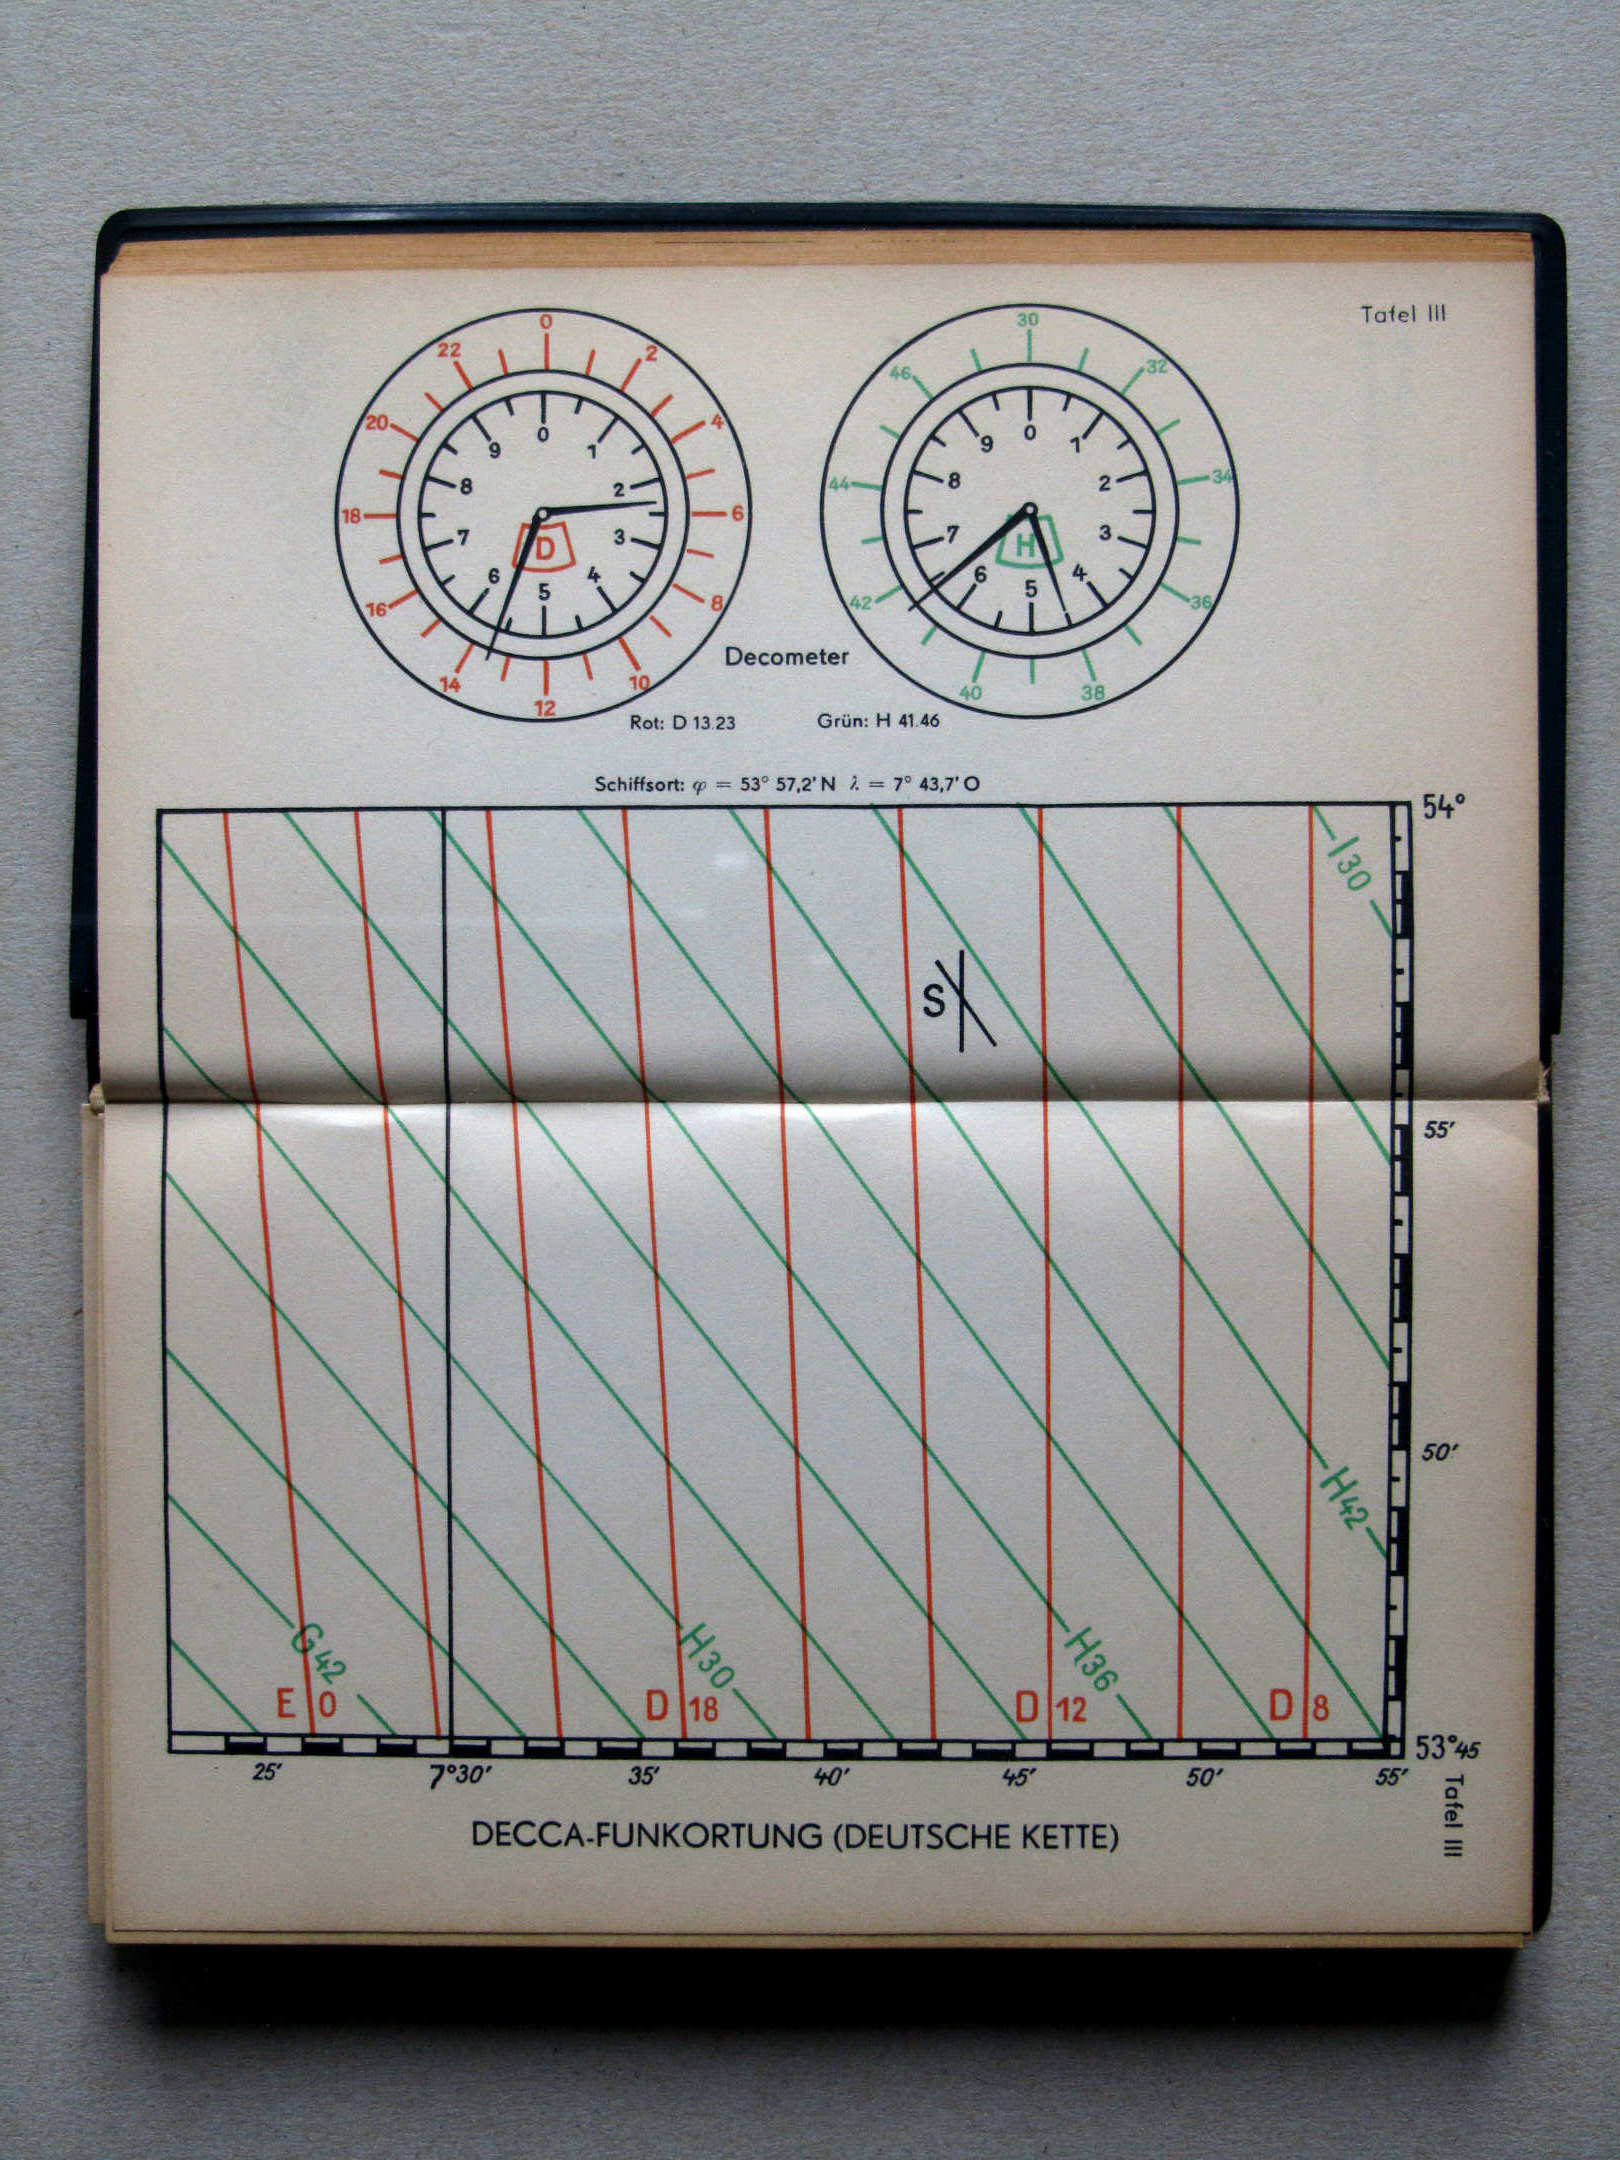 Tafel III
0
2
4
6
8
10
12
14
16
18
20
22
0
1
2
3
4
5
6
7
8
9
D
30
32
34
36
38
40
42
44
46
0
1
2
3
4
5
6
7
8
9
H
Decometer
Rot: D 13.23 Grün: H 41.46
Schiffsort: φ = 53° 57,2' N λ = 7° 43,7' O
54°
I 30
S
55'
50'
H42
G 42
H30
H36
E 0
D 18
D 12
D 8
53°45
25' 7°30' 35' 40' 45' 50' 55'
Tafel III
DECCA-FUNKORTUNG (DEUTSCHE KETTE)